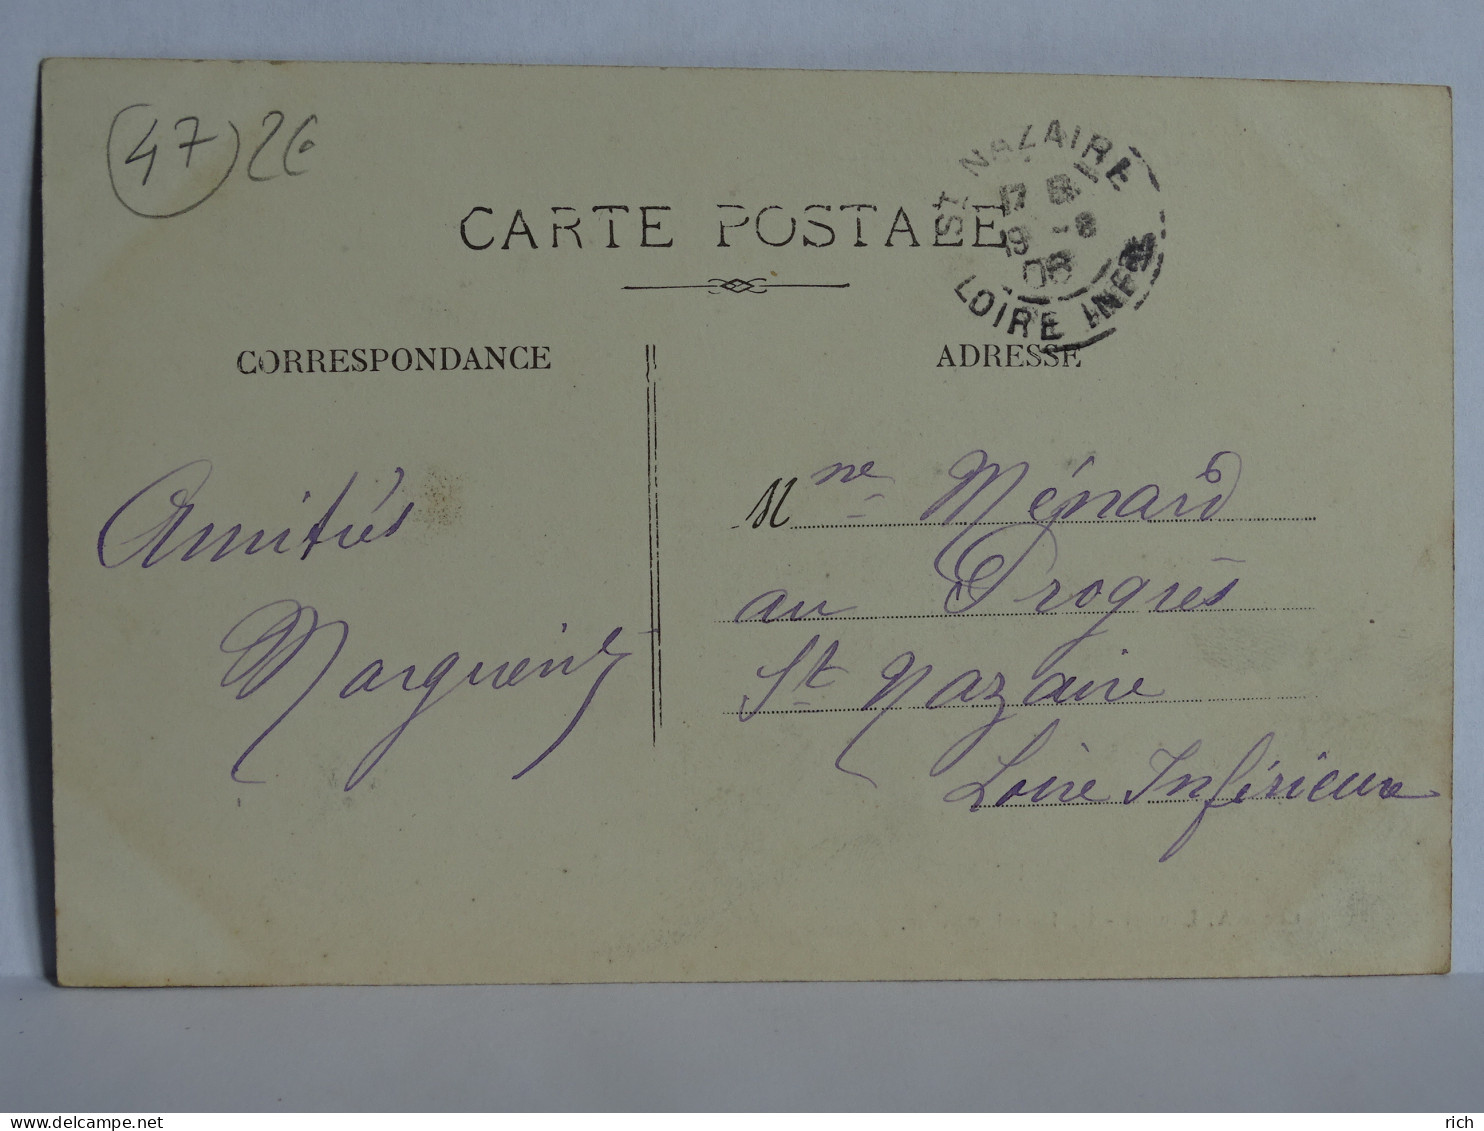 (47) 26
CARTE POSTALE
ST NAZAIRE
LOIRE INFRE
CORRESPONDANCE
ADRESSE
Amitiés
Marguerite
Mme Ménard
au Progrès
St Nazaire
Loire Inférieure
rich
www.delcampe.net